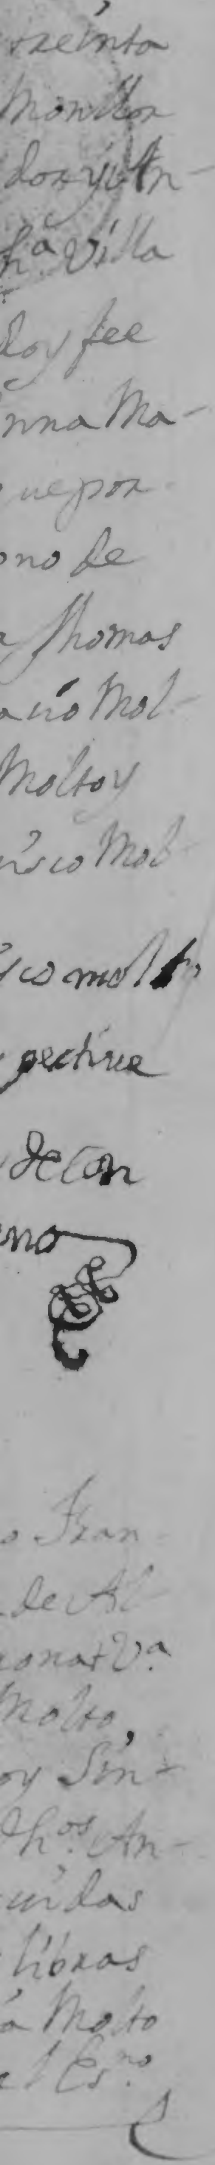 treinta
Monllor
dor y An-
ha. Villa
doy fee
nna Ma-
ue por
ono de
Thomas
acio Mol-
Molto y
sico Mol-
sco molto
pective
de Con
eno
Fran-
de Al-
onat Va.
Molto,
oy Sin-
Dhos. An-
uidas
libras
a Molto
el Esno.